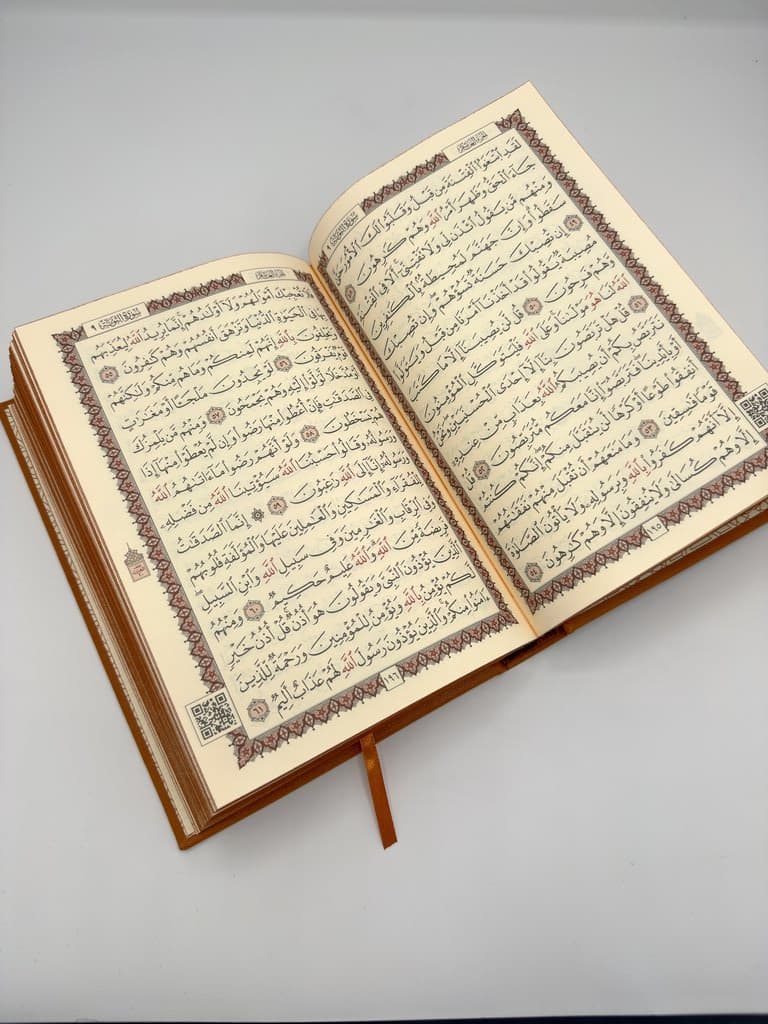 الجزء العاشر
سورة التوبة ٩
لَقَدِ ٱبْتَغَوُا۟ ٱلْفِتْنَةَ مِن قَبْلُ وَقَلَّبُوا۟ لَكَ ٱلْأُمُورَ حَتَّىٰ
جَآءَ ٱلْحَقُّ وَظَهَرَ أَمْرُ ٱللَّهِ وَهُمْ كَٰرِهُونَ ٤٨
وَمِنْهُم مَّن يَقُولُ ٱئْذَن لِّى وَلَا تَفْتِنِّىٓ أَلَا فِى ٱلْفِتْنَةِ
سَقَطُوا۟ وَإِنَّ جَهَنَّمَ لَمُحِيطَةٌۢ بِٱلْكَٰفِرِينَ ٤٩
إِن تُصِبْكَ حَسَنَةٌ تَسُؤْهُمْ وَإِن تُصِبْكَ
مُصِيبَةٌ يَقُولُوا۟ قَدْ أَخَذْنَآ أَمْرَنَا مِن قَبْلُ وَيَتَوَلَّوا۟
وَّهُمْ فَرِحُونَ ٥٠ قُل لَّن يُصِيبَنَآ إِلَّا مَا كَتَبَ
ٱللَّهُ لَنَا هُوَ مَوْلَىٰنَا وَعَلَى ٱللَّهِ فَلْيَتَوَكَّلِ ٱلْمُؤْمِنُونَ
٥١ قُلْ هَلْ تَرَبَّصُونَ بِنَآ إِلَّآ إِحْدَى ٱلْحُسْنَيَيْنِ وَنَحْنُ
نَتَرَبَّصُ بِكُمْ أَن يُصِيبَكُمُ ٱللَّهُ بِعَذَابٍ مِّنْ عِندِهِۦٓ
أَوْ بِأَيْدِينَا فَتَرَبَّصُوٓا۟ إِنَّا مَعَكُم مُّتَرَبِّصُونَ ٥٢ قُلْ
أَنفِقُوا۟ طَوْعًا أَوْ كَرْهًا لَّن يُتَقَبَّلَ مِنكُمْ إِنَّكُمْ كُنتُمْ
قَوْمًا فَٰسِقِينَ ٥٣ وَمَا مَنَعَهُمْ أَن تُقْبَلَ مِنْهُمْ نَفَقَٰتُهُمْ
إِلَّآ أَنَّهُمْ كَفَرُوا۟ بِٱللَّهِ وَبِرَسُولِهِۦ وَلَا يَأْتُونَ ٱلصَّلَوٰةَ
إِلَّا وَهُمْ كُسَالَىٰ وَلَا يُنفِقُونَ إِلَّا وَهُمْ كَٰرِهُونَ ٥٤
١٩٥
الجزء العاشر
سورة التوبة ٩
فَلَا تُعْجِبْكَ أَمْوَٰلُهُمْ وَلَآ أَوْلَٰدُهُمْ إِنَّمَا يُرِيدُ ٱللَّهُ لِيُعَذِّبَهُم
بِهَا فِى ٱلْحَيَوٰةِ ٱلدُّنْيَا وَتَزْهَقَ أَنفُسُهُمْ وَهُمْ كَٰفِرُونَ ٥٥
وَيَحْلِفُونَ بِٱللَّهِ إِنَّهُمْ لَمِنكُمْ وَمَا هُم مِّنكُمْ وَلَٰكِنَّهُمْ
قَوْمٌ يَفْرَقُونَ ٥٦ لَوْ يَجِدُونَ مَلْجَـًٔا أَوْ مَغَٰرَٰتٍ
أَوْ مُدَّخَلًا لَّوَلَّوْا۟ إِلَيْهِ وَهُمْ يَجْمَحُونَ ٥٧ وَمِنْهُم مَّن يَلْمِزُكَ
فِى ٱلصَّدَقَٰتِ فَإِنْ أُعْطُوا۟ مِنْهَا رَضُوا۟ وَإِن لَّمْ يُعْطَوْا۟ مِنْهَآ إِذَا
هُمْ يَسْخَطُونَ ٥٨ وَلَوْ أَنَّهُمْ رَضُوا۟ مَآ ءَاتَىٰهُمُ ٱللَّهُ
وَرَسُولُهُۥ وَقَالُوا۟ حَسْبُنَا ٱللَّهُ سَيُؤْتِينَا ٱللَّهُ مِن فَضْلِهِۦ
وَرَسُولُهُۥٓ إِنَّآ إِلَى ٱللَّهِ رَٰغِبُونَ ٥٩ ۞ إِنَّمَا ٱلصَّدَقَٰتُ
لِلْفُقَرَآءِ وَٱلْمَسَٰكِينِ وَٱلْعَٰمِلِينَ عَلَيْهَا وَٱلْمُؤَلَّفَةِ قُلُوبُهُمْ
وَفِى ٱلرِّقَابِ وَٱلْغَٰرِمِينَ وَفِى سَبِيلِ ٱللَّهِ وَٱبْنِ ٱلسَّبِيلِ
فَرِيضَةً مِّنَ ٱللَّهِ وَٱللَّهُ عَلِيمٌ حَكِيمٌ ٦٠ وَمِنْهُمُ
ٱلَّذِينَ يُؤْذُونَ ٱلنَّبِىَّ وَيَقُولُونَ هُوَ أُذُنٌ قُلْ أُذُنُ خَيْرٍ
لَّكُمْ يُؤْمِنُ بِٱللَّهِ وَيُؤْمِنُ لِلْمُؤْمِنِينَ وَرَحْمَةٌ لِّلَّذِينَ
ءَامَنُوا۟ مِنكُمْ وَٱلَّذِينَ يُؤْذُونَ رَسُولَ ٱللَّهِ لَهُمْ عَذَابٌ أَلِيمٌ ٦١
١٩٦